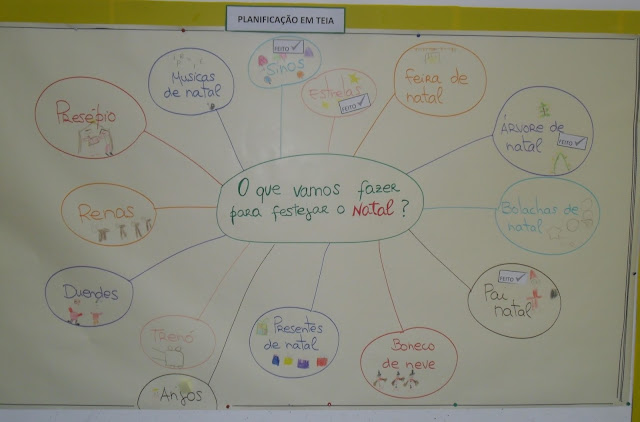 PLANIFICAÇÃO EM TEIA
O que vamos fazer
para festejar o Natal?
Presépio
Musicas
de natal
FEITO ✓
Sinos
Estrelas
FEITO ✓
Feira de
natal
Árvore de
natal
FEITO ✓
Bolachas de
natal
FEITO ✓
Pai
natal
Boneco
de neve
Presentes
de natal
Anjos
Trenó
Duendes
Renas